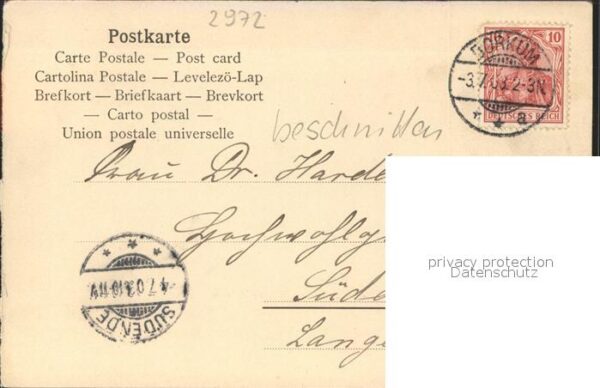 2972
Postkarte
Carte Postale — Post card
Cartolina Postale — Levelezö-Lap
Brefkort — Briefkaart — Brevkort
— Carto postal —
Union postale universelle
10
DEUTSCHES REICH
BORKUM
-3.7.03.2-3N.
* * a
beschnitten
Frau Dr. Harde
Hochwohlge
Süde
Lange
SÜDENDE
-4.7.03.10-11V.
privacy protection
Datenschutz